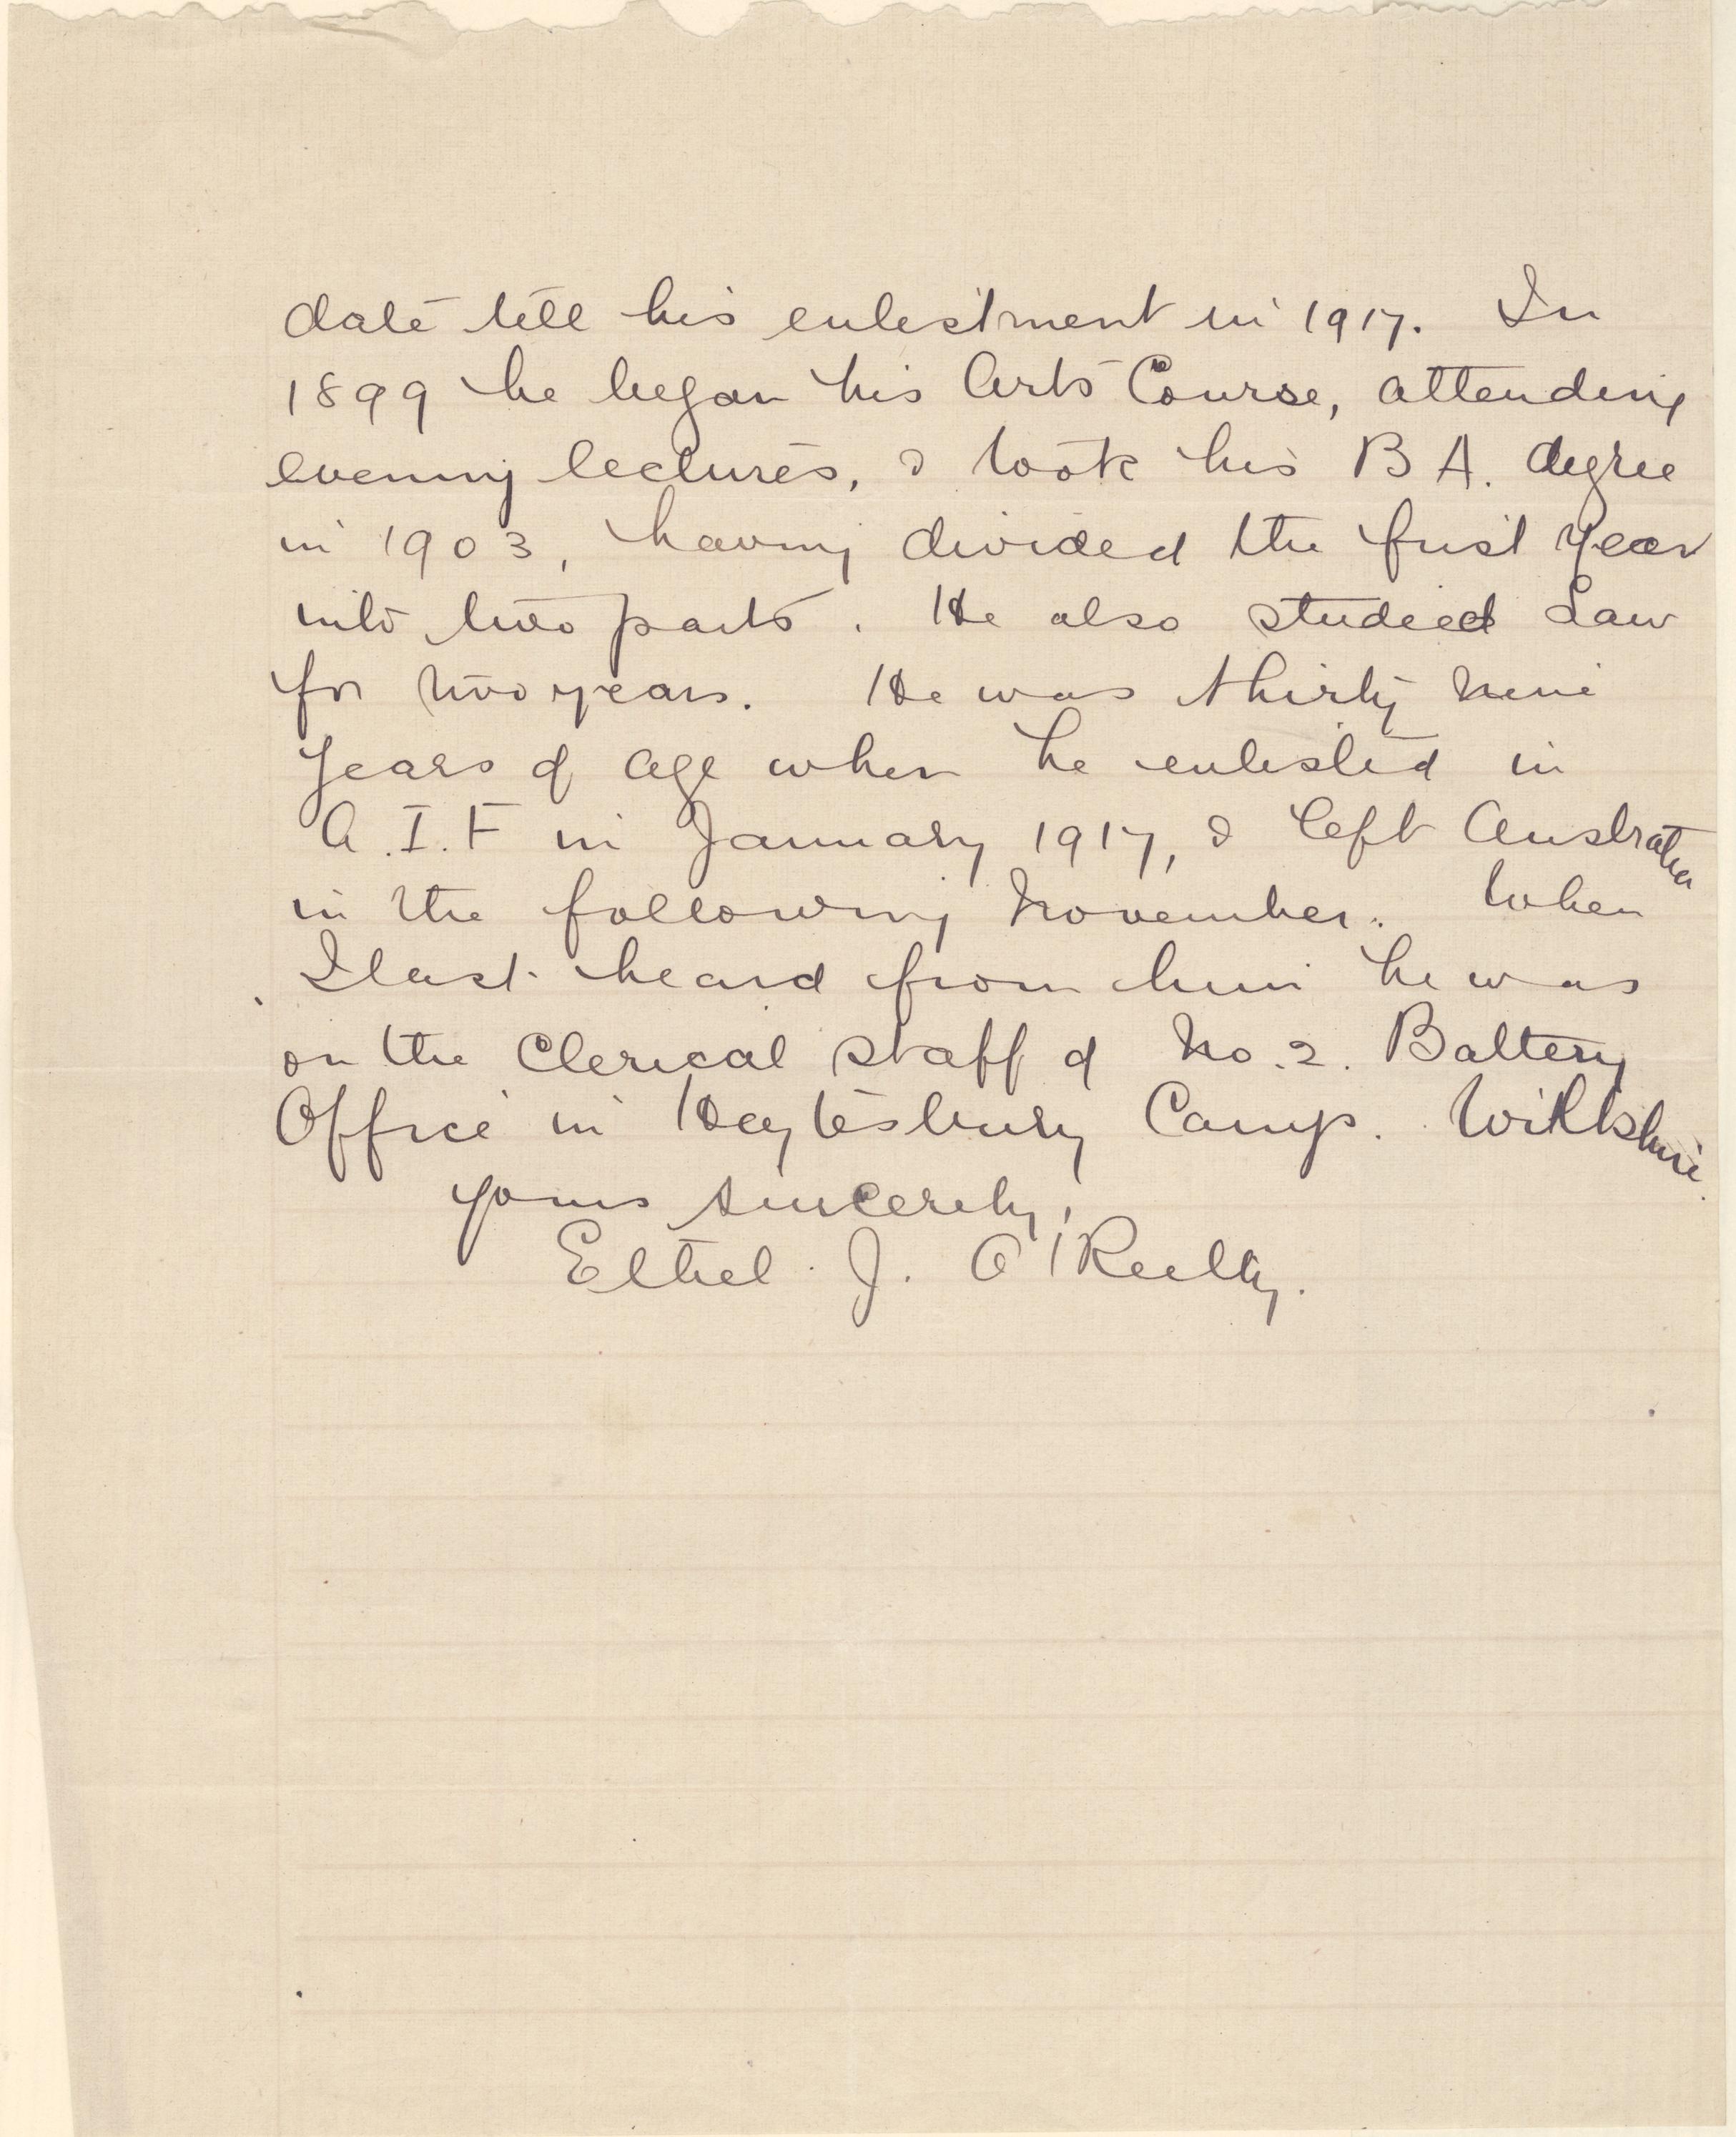 date till his enlistment in 1917. In
1899 he began his Arts Course, attending
evening lectures, & took his B A. degree
in 1903, having divided the first year
into two parts. He also studied Law
for two years. He was thirty nine
years of age when he enlisted in
A.I.F in January 1917, & left Australia
in the following November. When
I last heard from him he was
on the Clerical staff of No. 2. Battery
Office in Heytesbury Camp. Wiltshire.
yours sincerely,
Ethel J. O'Reilly.